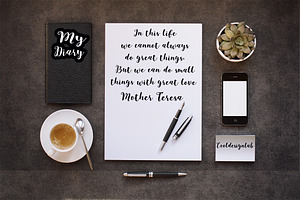 My
Diary
In this life
we cannot always
do great things.
But we can do small
things with great love
Mother Teresa
Cooldesignlab